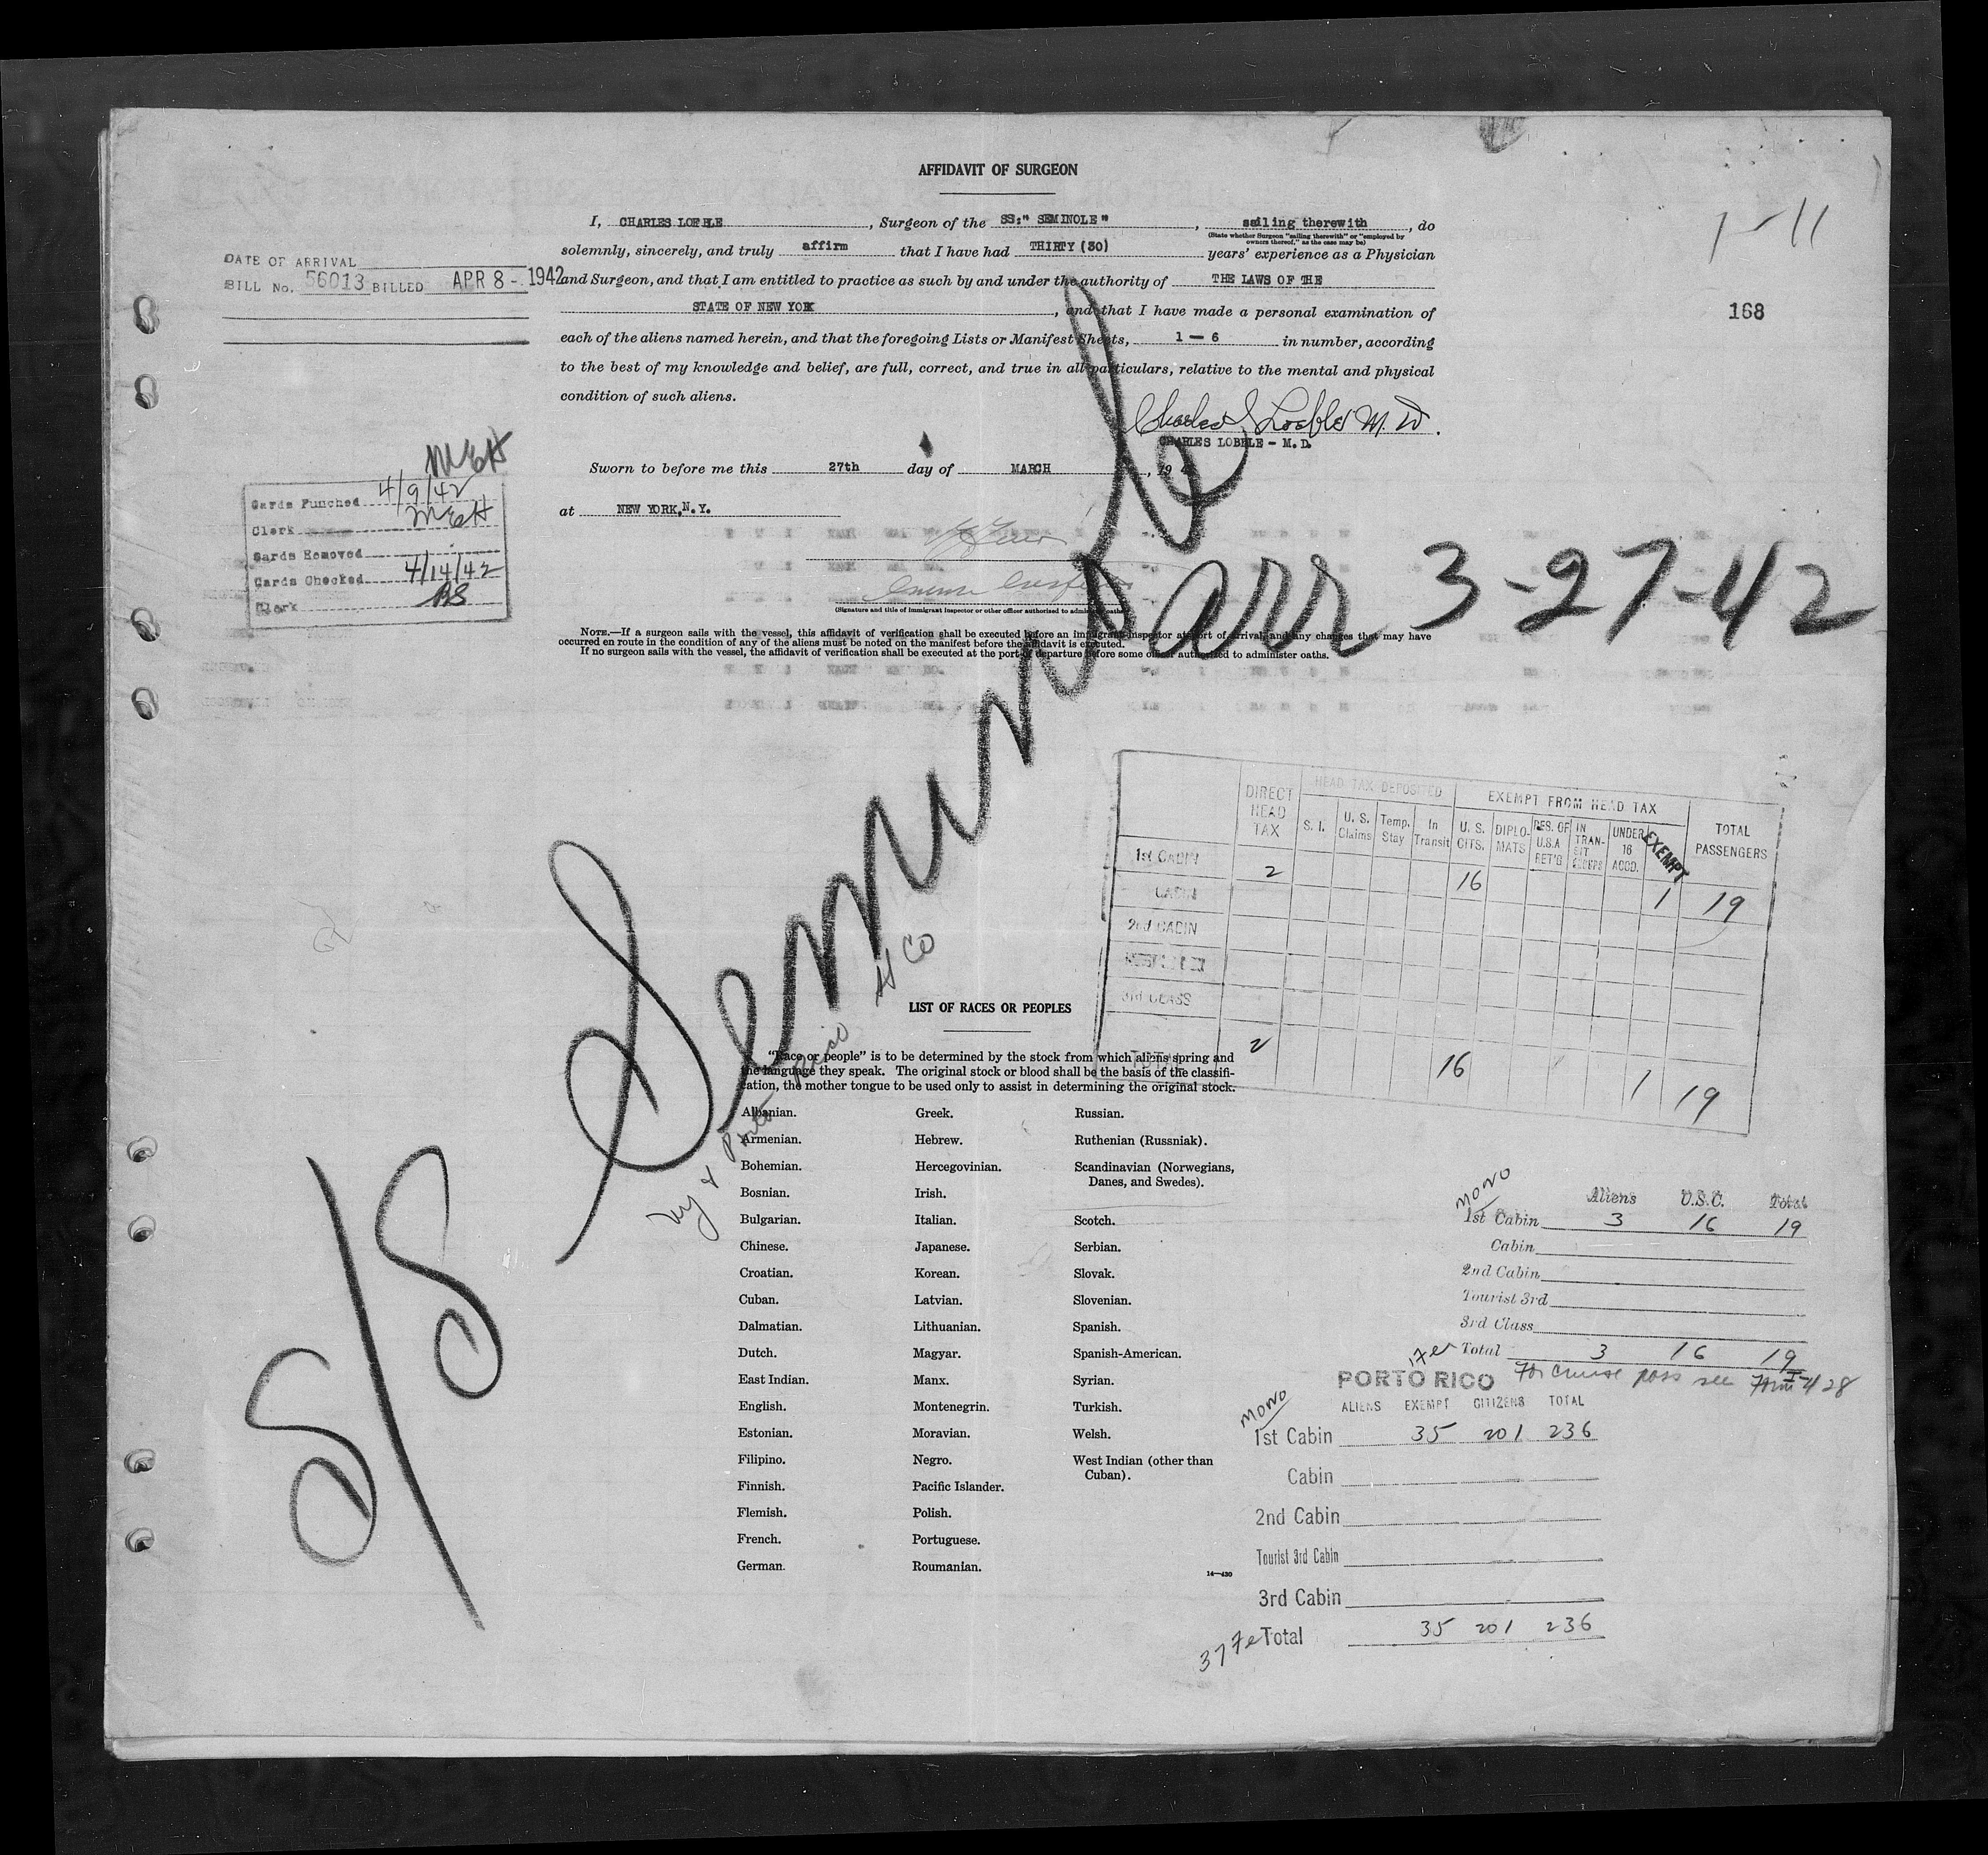 AFFIDAVIT OF SURGEON
I, CHARLES LOEBLE, Surgeon of the SS:" SEMINOLE", sailing therewith, do
(State whether Surgeon "sailing therewith" or "employed by owners thereof," as the case may be)
solemnly, sincerely, and truly affirm that I have had THIRTY (30) years' experience as a Physician
and Surgeon, and that I am entitled to practice as such by and under the authority of THE LAWS OF THE
STATE OF NEW YORK, and that I have made a personal examination of
each of the aliens named herein, and that the foregoing Lists or Manifest Sheets, 1 — 6 in number, according
to the best of my knowledge and belief, are full, correct, and true in all particulars, relative to the mental and physical
condition of such aliens.
Charles Loeble M.D.
CHARLES LOBELE - M.D.
Sworn to before me this 27th day of MARCH, 19 4
at NEW YORK, N.Y.
(Signature and title of immigrant inspector or other officer authorized to administer oaths)
NOTE.—If a surgeon sails with the vessel, this affidavit of verification shall be executed before an immigrant inspector at port of arrival and any changes that may have
occurred en route in the condition of any of the aliens must be noted on the manifest before the affidavit is executed.
If no surgeon sails with the vessel, the affidavit of verification shall be executed at the port of departure before some officer authorized to administer oaths.
DATE OF ARRIVAL
BILL No. 56013 BILLED APR 8 - 1942
1-11
168
MEH
Cards Punched 4/9/42
Clerk MEH
Cards Removed
Cards Checked 4/14/42
Clerk BS
S/S Seminole
arr 3-27-42
NY & Porto Rico SS Co
DIRECT HEAD TAX
HEAD TAX DEPOSITED
EXEMPT FROM HEAD TAX
TOTAL PASSENGERS
S. I. U. S. Claims Temp. Stay In Transit U. S. CITS. DIPLO-MATS RES. OF U.S.A RET'G IN TRAN-SIT UNDER 16 ACCD. EXEMPT
1st CABIN 2 16 1 19
CABIN
2nd CABIN
3rd CLASS
TOTAL 2 16 1 19
LIST OF RACES OR PEOPLES
"Race or people" is to be determined by the stock from which aliens spring and
the language they speak. The original stock or blood shall be the basis of the classifi-
cation, the mother tongue to be used only to assist in determining the original stock.
Albanian.
Armenian.
Bohemian.
Bosnian.
Bulgarian.
Chinese.
Croatian.
Cuban.
Dalmatian.
Dutch.
East Indian.
English.
Estonian.
Filipino.
Finnish.
Flemish.
French.
German.
Greek.
Hebrew.
Hercegovinian.
Irish.
Italian.
Japanese.
Korean.
Latvian.
Lithuanian.
Magyar.
Manx.
Montenegrin.
Moravian.
Negro.
Pacific Islander.
Polish.
Portuguese.
Roumanian.
Russian.
Ruthenian (Russniak).
Scandinavian (Norwegians,
Danes, and Swedes).
Scotch.
Serbian.
Slovak.
Slovenian.
Spanish.
Spanish-American.
Syrian.
Turkish.
Welsh.
West Indian (other than
Cuban).
14—430
MONO
Aliens U.S.C. Total
1st Cabin 3 16 19
Cabin
2nd Cabin
Tourist 3rd
3rd Class
Total 3 16 19
For cruise pass see Form I-428
PORTO RICO
MONO
ALIENS EXEMPT CITIZENS TOTAL
1st Cabin 35 201 236
Cabin
2nd Cabin
Tourist 3rd Cabin
3rd Cabin
Total 35 201 236